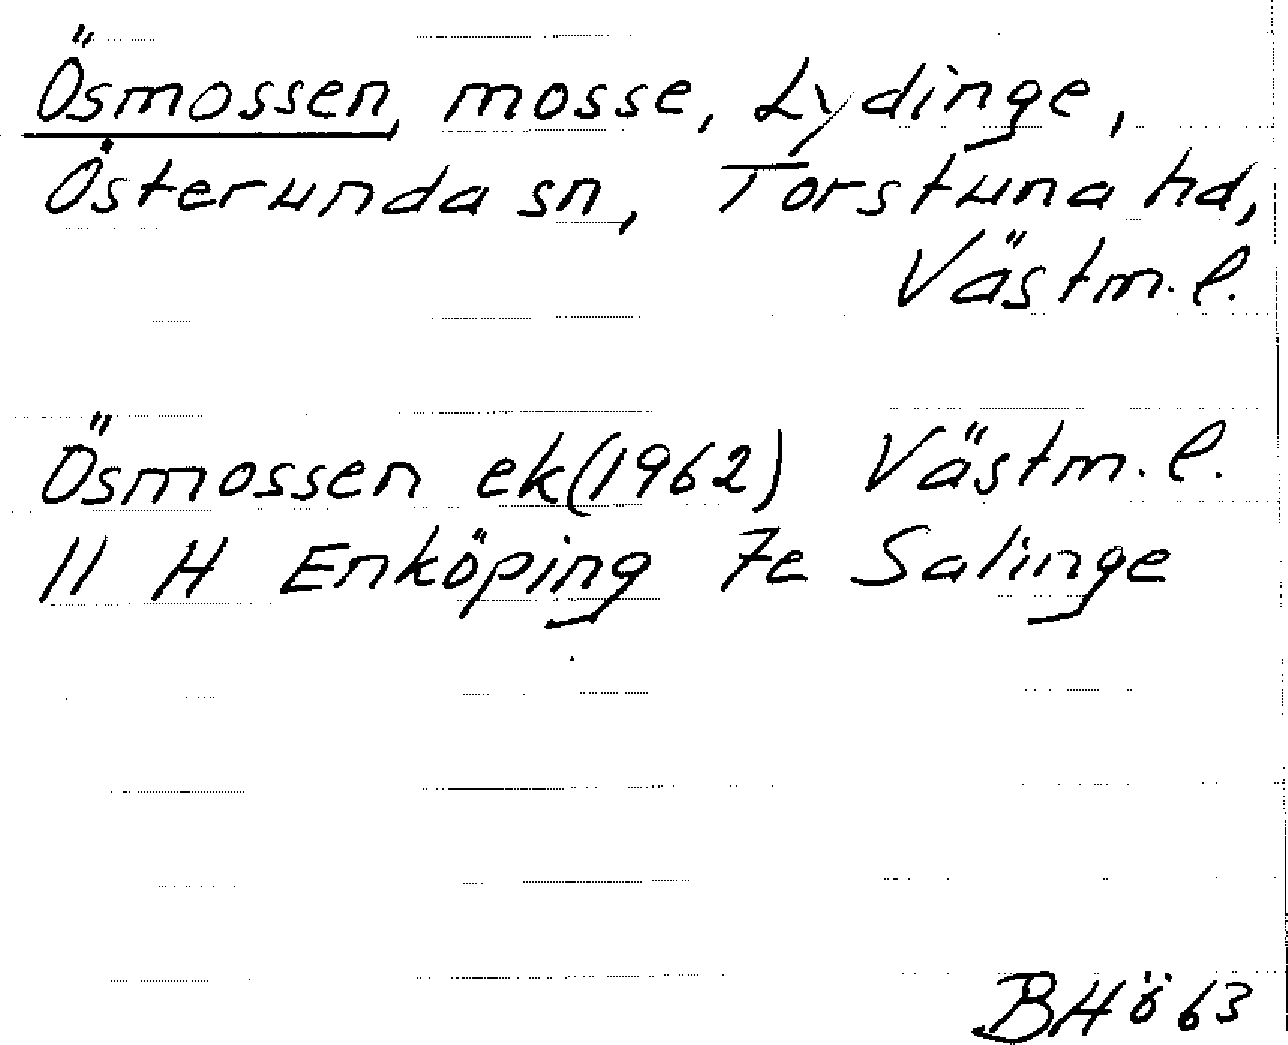 Ösmossen, mosse, Lydinge,
Österunda sn, Torstuna hd,
Västm.l.
Ösmossen ek(1962) Västm.l.
11 H Enköping 7e Salinge
BHö 63